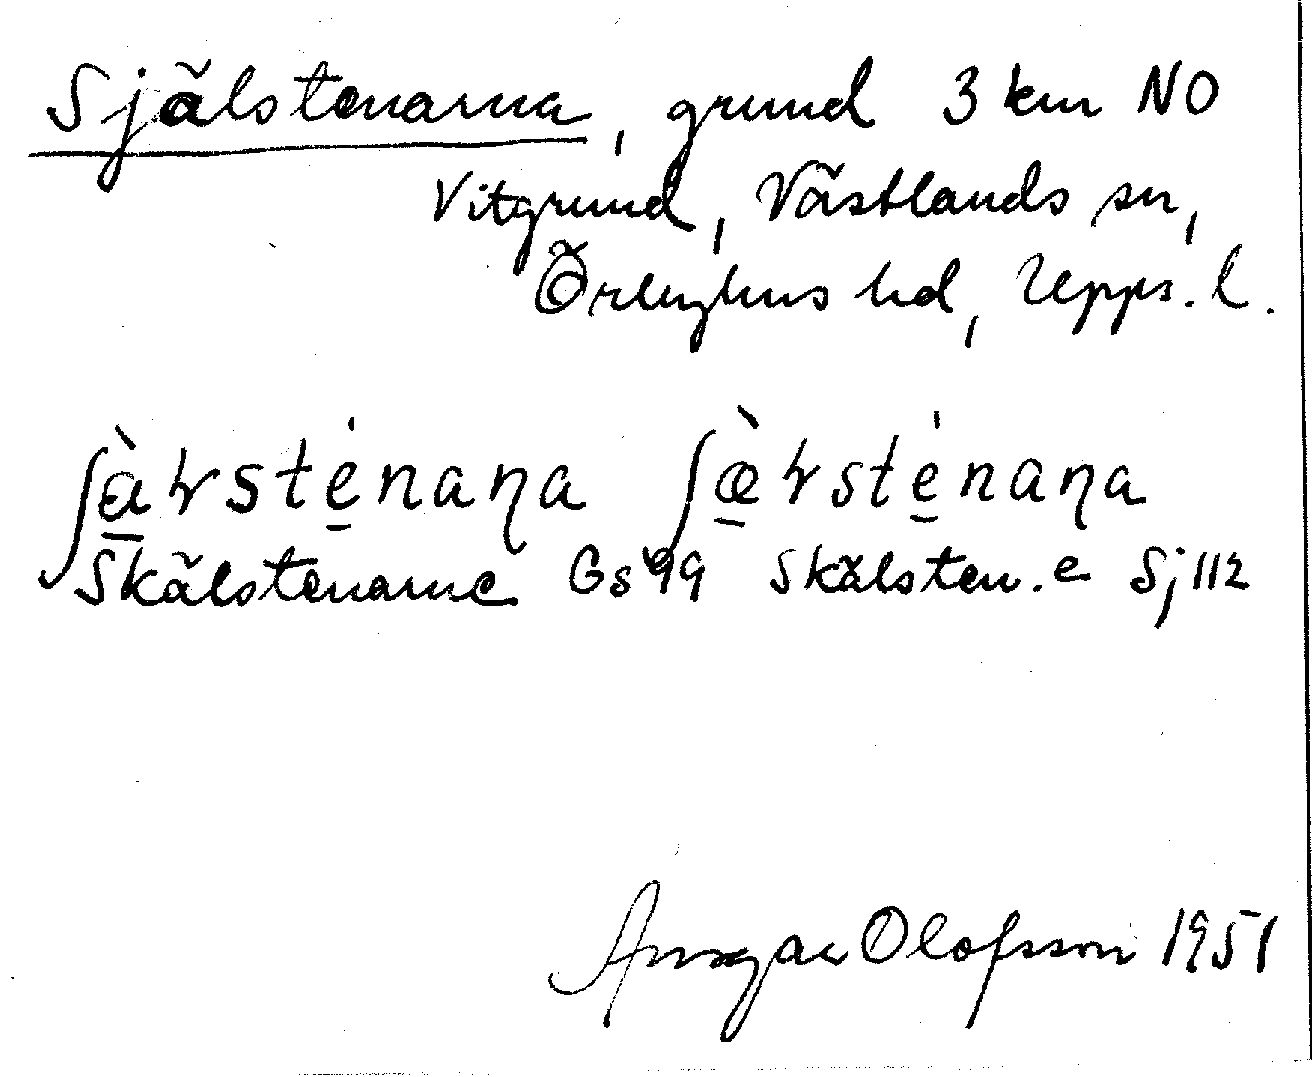 Själstenarna, grund 3 km NO
Vitgrund, Västlands sn,
Örbyhus hd, Upps. l.
Skälstenarne Gs 99 Skälsten.e Sj 112
Ansgar Olofsson 1951